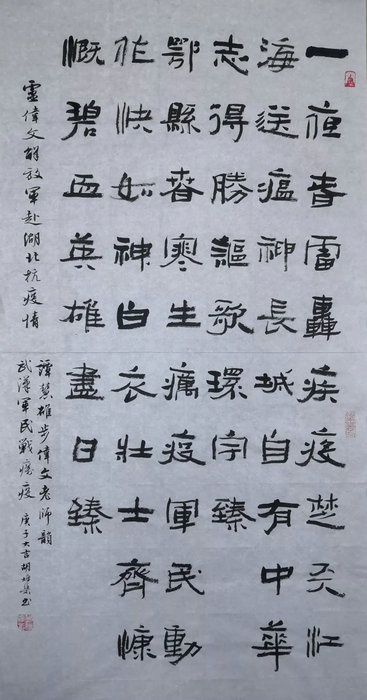 一夜春雷轟疾疫楚天江
海送瘟神長城自有中華
志得勝謳歌環宇臻
鄂縣春寒生癘疫軍民動
作快如神白衣壯士齊慷
慨碧血英雄盡日臻
偉文解放軍赴湖北抗疫情
譚慧雄步偉文老師韻
武漢軍民戰癘疫 庚子大吉胡集书